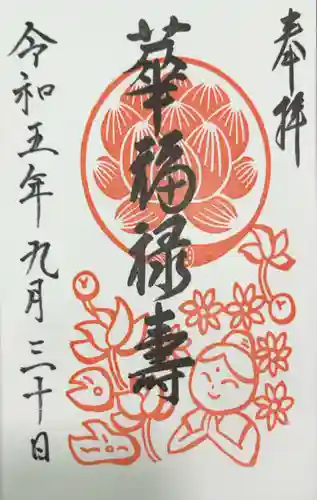 奉拝
華福禄寿
令和五年九月三十日